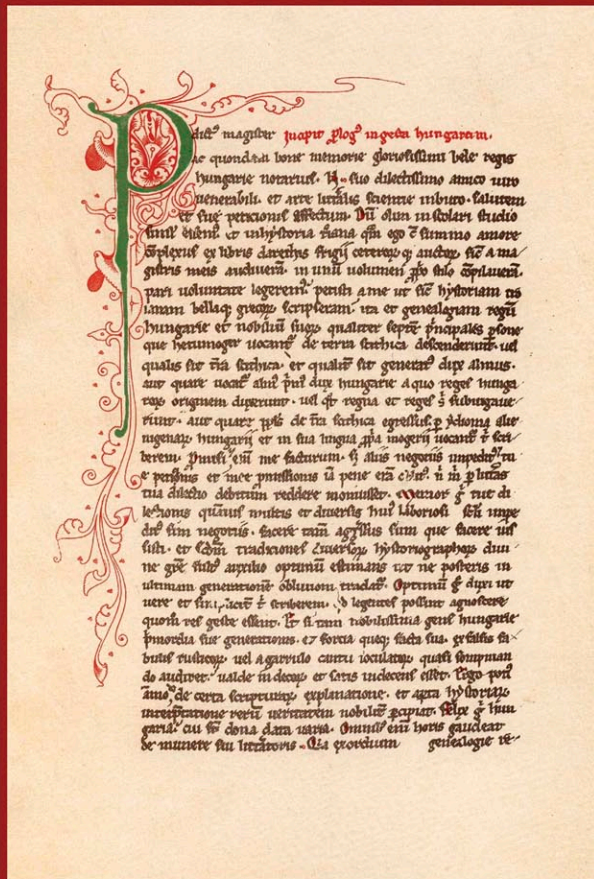 P dictꝰ magister Incipit ꝓlogꝰ in gesta hungaroꝝ.
ac quondam bone memorie gloriosissimi bele regis
hungarie notariuſ. N. suo dilectissimo amico uiro
uenerabili. et arte litt̄alis scientie inbuto. salutem
et sue peticionis effectum. Dū olim in scolari studio
simul essemꝰ. et in hystoria t̄iana quā ego cū summo amore
cōplexus ex libris darethis frigii ceteroꝝ q̧ auctoꝝ. sic̄ a ma/
gistris meis audiuerā. in unū uolumen ꝓprio stilo cōpilauerā.
pari uoluntate legeremꝰ. petisti a me ut sic̄ hystoriam tro
ianam bellaq̧ grecoꝝ scripseram. ita et genealogiam regū
hungarie et nobiliū suoꝝ. qualiter septē p̄ncipales ꝑsone
que hetumoger uocant̄. de terra scithica descenderunt. uel
qualis sit t̄ra scithica. et qualit̄ sit generatꝰ dux almus.
aut quare uocat̄ almꝰ p̄mꝰ dux hungarie a quo reges hunga
roꝝ originem duxerunt. uel q̄t regna et reges s̄ subiugaue
runt. aut quare ppl̄s de t̄ra scithica egressus ꝑ ydioma alie
nigenaꝝ hungarii et in sua lingua ꝓpria mogerii uocant̄ t̄ scri
berem. Promisi eni me facturum. s̄ aliis negotiis impeditꝰ tu
e petitionis et mee promissionis iā pene erā oblitꝰ. n̄ m̄ ꝑ litt̄as
tua dilectio debitum reddere monuisset. Memor g̊ tue di
lectionis quāuis multis et diuersis huiꝰ laboriosi sc̄li impe
ditꝰ sim negotiis. facere tam̄ aggressus sum que facere ius
sisti. et scd̄m traditiones diuersoꝝ hystoriographoꝝ diui
ne gr̄e fultꝰ auxilio optimū estimans ut ne posteris in
ultimam generationē obliuioni tradat̄. Optimū g̊ duxi ut
uere et simplicit̄ t̄ scriberem. qd legentes possint agnoscere
quomō res geste essent. Et si tam nobilissima gens hungarie
p̄mordia sue generationis. et fortia queq̧ facta sua. ex falsis fa
bulis rusticoꝝ. uel a garrulo cantu ioculatoꝝ quasi sompnian
do audiret. ualde indecoꝝ et satis indecens esset. Ergo potiꝰ
āmo de certa scripturaꝝ explanatione. et aꝑta hystoriaꝝ
interp̄tatione rerū ueritatem nobilit̄ ꝑcipiat. Felix g̊ hun
garia. cui st̄ dona data uaria. Omnibꝰ enī horis gaudeat
de munere sui litt̄atoris. Quia exordium genealogie re